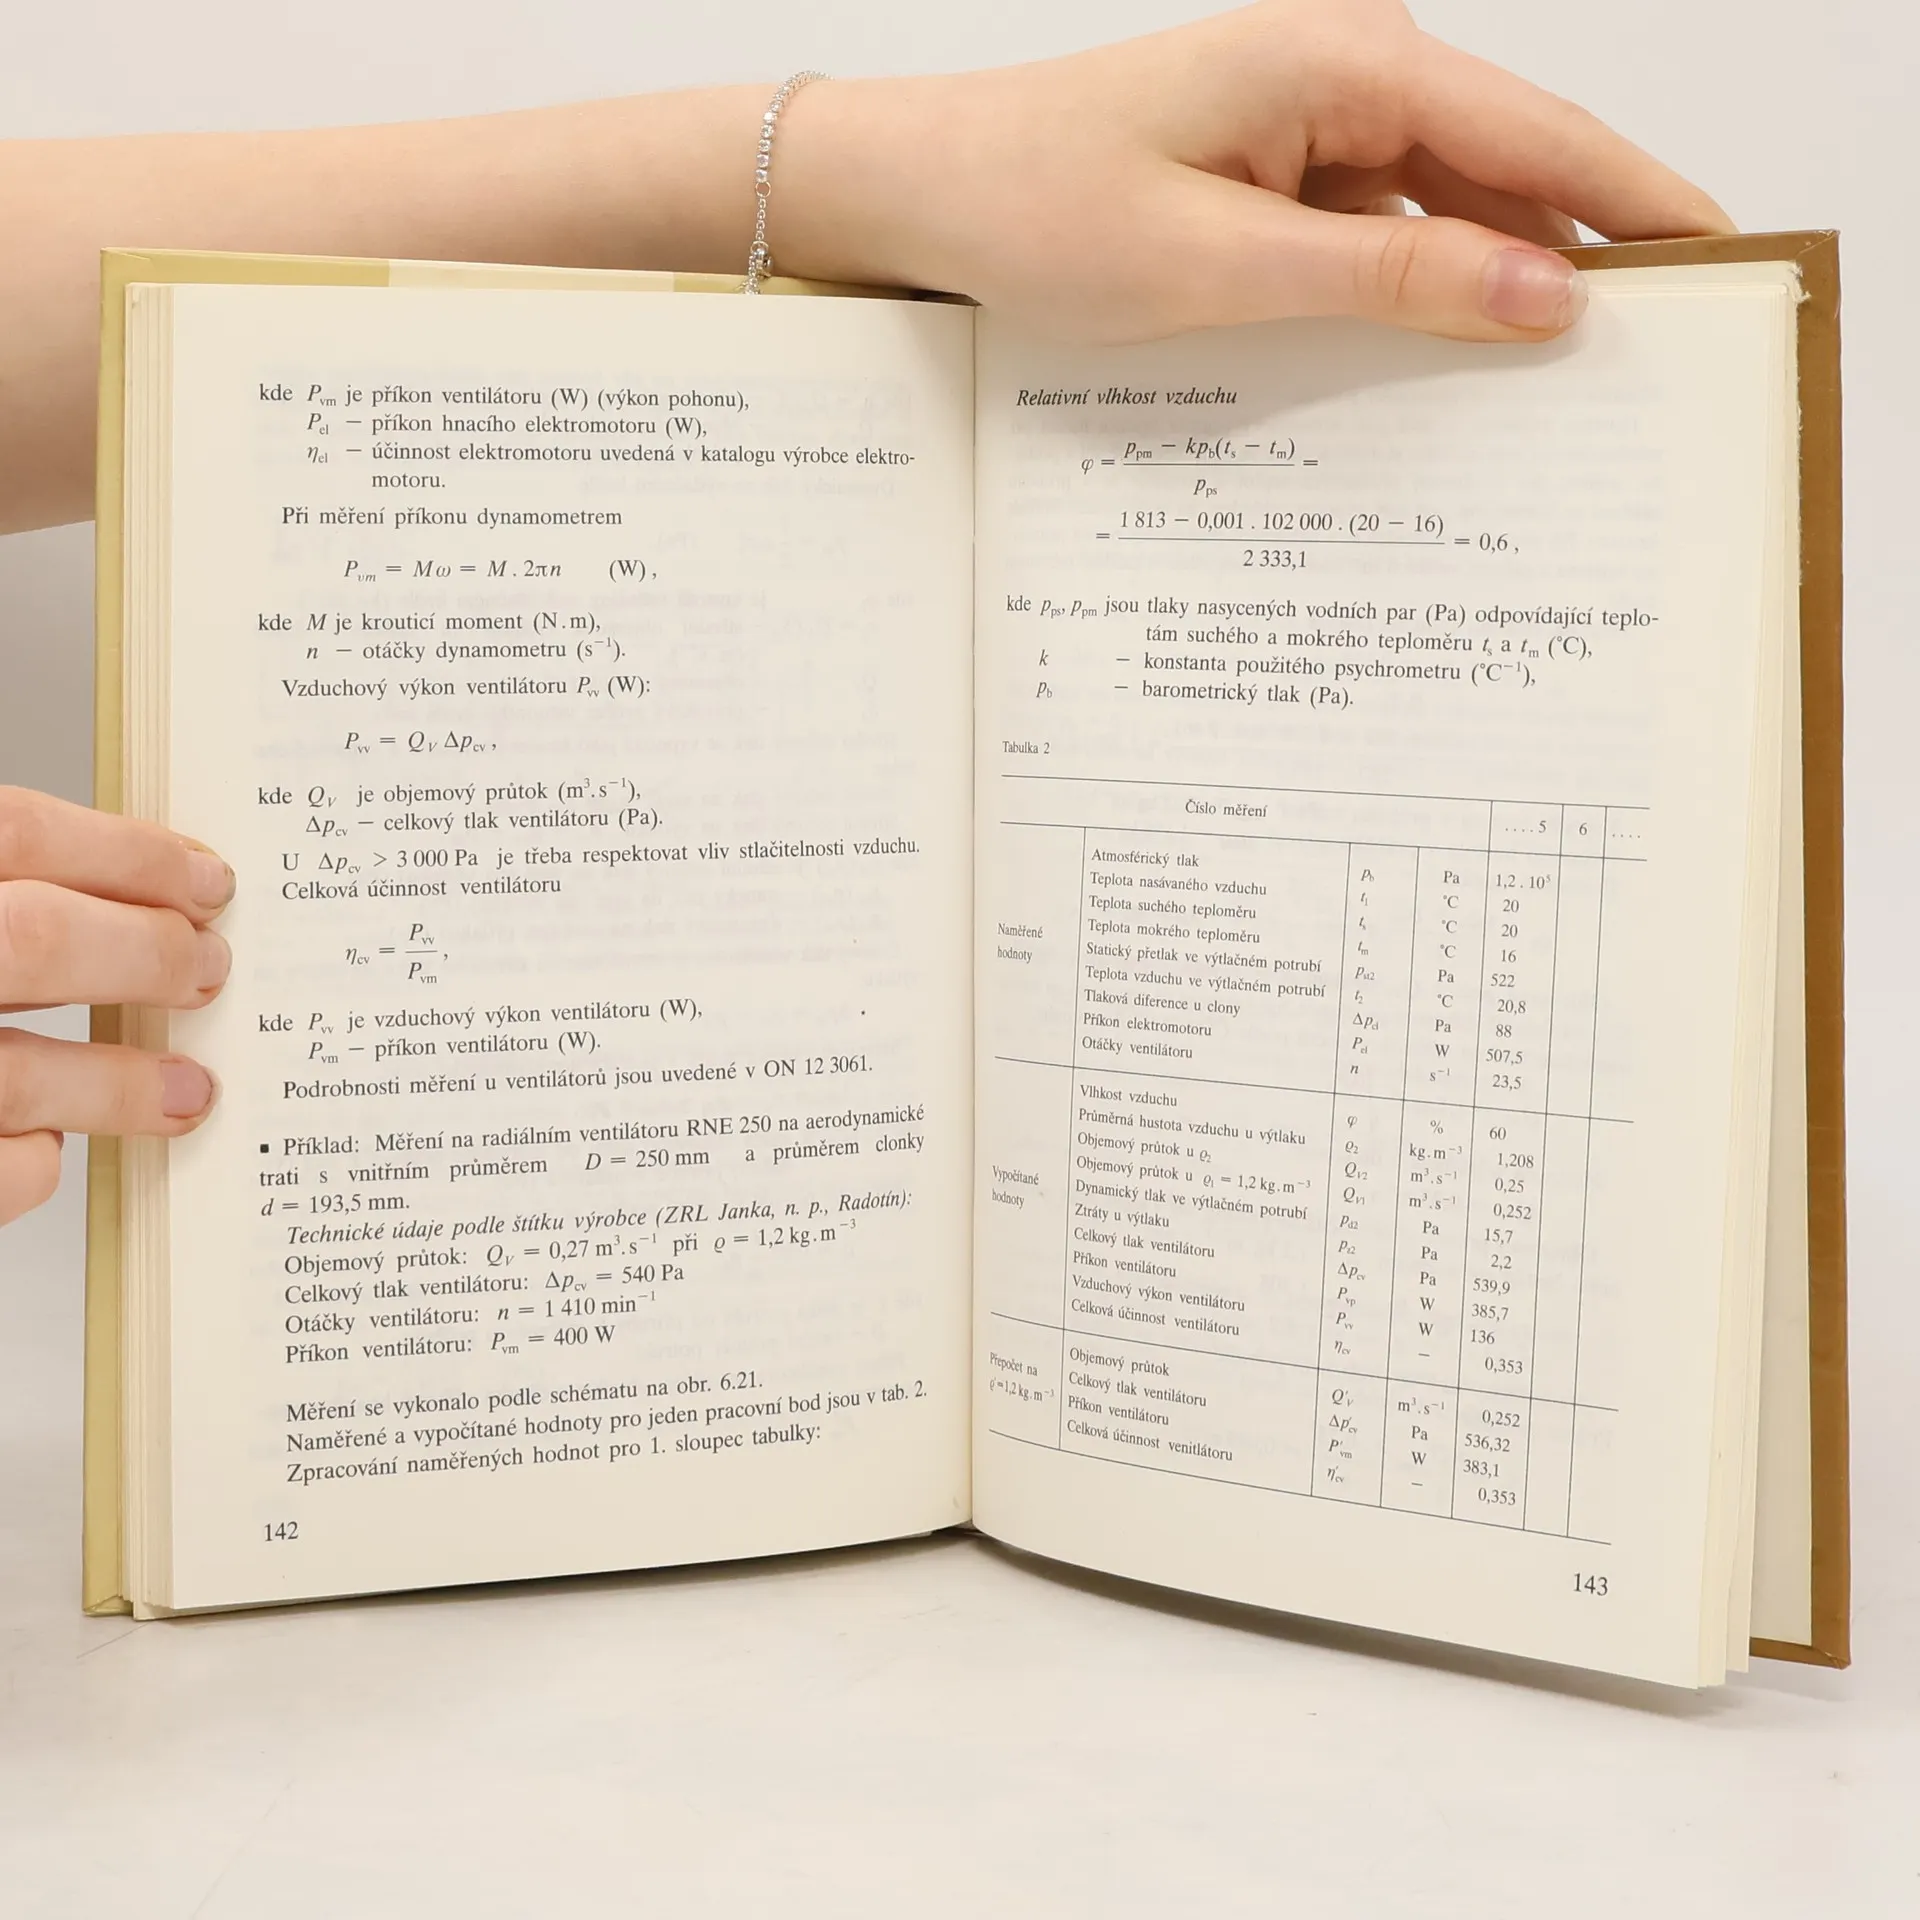 kde P_vm je příkon ventilátoru (W) (výkon pohonu),
P_el — příkon hnacího elektromotoru (W),
η_el — účinnost elektromotoru uvedená v katalogu výrobce elektro-
motoru.
Při měření příkonu dynamometrem
P_vm = Mω = M . 2πn (W),
kde M je krouticí moment (N.m),
n — otáčky dynamometru (s⁻¹).
Vzduchový výkon ventilátoru P_vv (W):
P_vv = Q_V Δp_cv,
kde Q_V je objemový průtok (m³.s⁻¹),
Δp_cv — celkový tlak ventilátoru (Pa).
U Δp_cv > 3 000 Pa je třeba respektovat vliv stlačitelnosti vzduchu.
Celková účinnost ventilátoru
η_cv = P_vv / P_vm,
kde P_vv je vzduchový výkon ventilátoru (W),
P_vm — příkon ventilátoru (W).
Podrobnosti měření u ventilátorů jsou uvedené v ON 12 3061.
▪ Příklad: Měření na radiálním ventilátoru RNE 250 na aerodynamické
trati s vnitřním průměrem D = 250 mm a průměrem clonky
d = 193,5 mm.
Technické údaje podle štítku výrobce (ZRL Janka, n. p., Radotín):
Objemový průtok: Q_V = 0,27 m³.s⁻¹ při ϱ = 1,2 kg.m⁻³
Celkový tlak ventilátoru: Δp_cv = 540 Pa
Otáčky ventilátoru: n = 1 410 min⁻¹
Příkon ventilátoru: P_vm = 400 W
Měření se vykonalo podle schématu na obr. 6.21.
Naměřené a vypočítané hodnoty pro jeden pracovní bod jsou v tab. 2.
Zpracování naměřených hodnot pro 1. sloupec tabulky:
142
Relativní vlhkost vzduchu
φ = (p_pm − kp_b(t_s − t_m)) / p_ps =
= (1 813 − 0,001 . 102 000 . (20 − 16)) / 2 333,1 = 0,6,
kde p_ps, p_pm jsou tlaky nasycených vodních par (Pa) odpovídající teplo-
tám suchého a mokrého teploměru t_s a t_m (°C),
k — konstanta použitého psychrometru (°C⁻¹),
p_b — barometrický tlak (Pa).
Tabulka 2
Číslo měření ....5 6 ....
Naměřené hodnoty
Atmosférický tlak p_b Pa 1,2 . 10⁵
Teplota nasávaného vzduchu t_1 °C 20
Teplota suchého teploměru t_s °C 20
Teplota mokrého teploměru t_m °C 16
Statický přetlak ve výtlačném potrubí p_st2 Pa 522
Teplota vzduchu ve výtlačném potrubí t_2 °C 20,8
Tlaková diference u clony Δp_cl Pa 88
Příkon elektromotoru P_el W 507,5
Otáčky ventilátoru n s⁻¹ 23,5
Vypočítané hodnoty
Vlhkost vzduchu φ % 60
Průměrná hustota vzduchu u výtlaku ϱ_2 kg.m⁻³ 1,208
Objemový průtok u ϱ_2 Q_V2 m³.s⁻¹ 0,25
Objemový průtok u ϱ_1 = 1,2 kg.m⁻³ Q_V1 m³.s⁻¹ 0,252
Dynamický tlak ve výtlačném potrubí p_d2 Pa 15,7
Ztráty u výtlaku p_z2 Pa 2,2
Celkový tlak ventilátoru Δp_cv Pa 539,9
Příkon ventilátoru P_vp W 385,7
Vzduchový výkon ventilátoru P_vv W 136
Celková účinnost ventilátoru η_cv — 0,353
Přepočet na ϱ′=1,2 kg.m⁻³
Objemový průtok Q′_V m³.s⁻¹ 0,252
Celkový tlak ventilátoru Δp′_cv Pa 536,32
Příkon ventilátoru P′_vm W 383,1
Celková účinnost venitlátoru η′_cv — 0,353
143